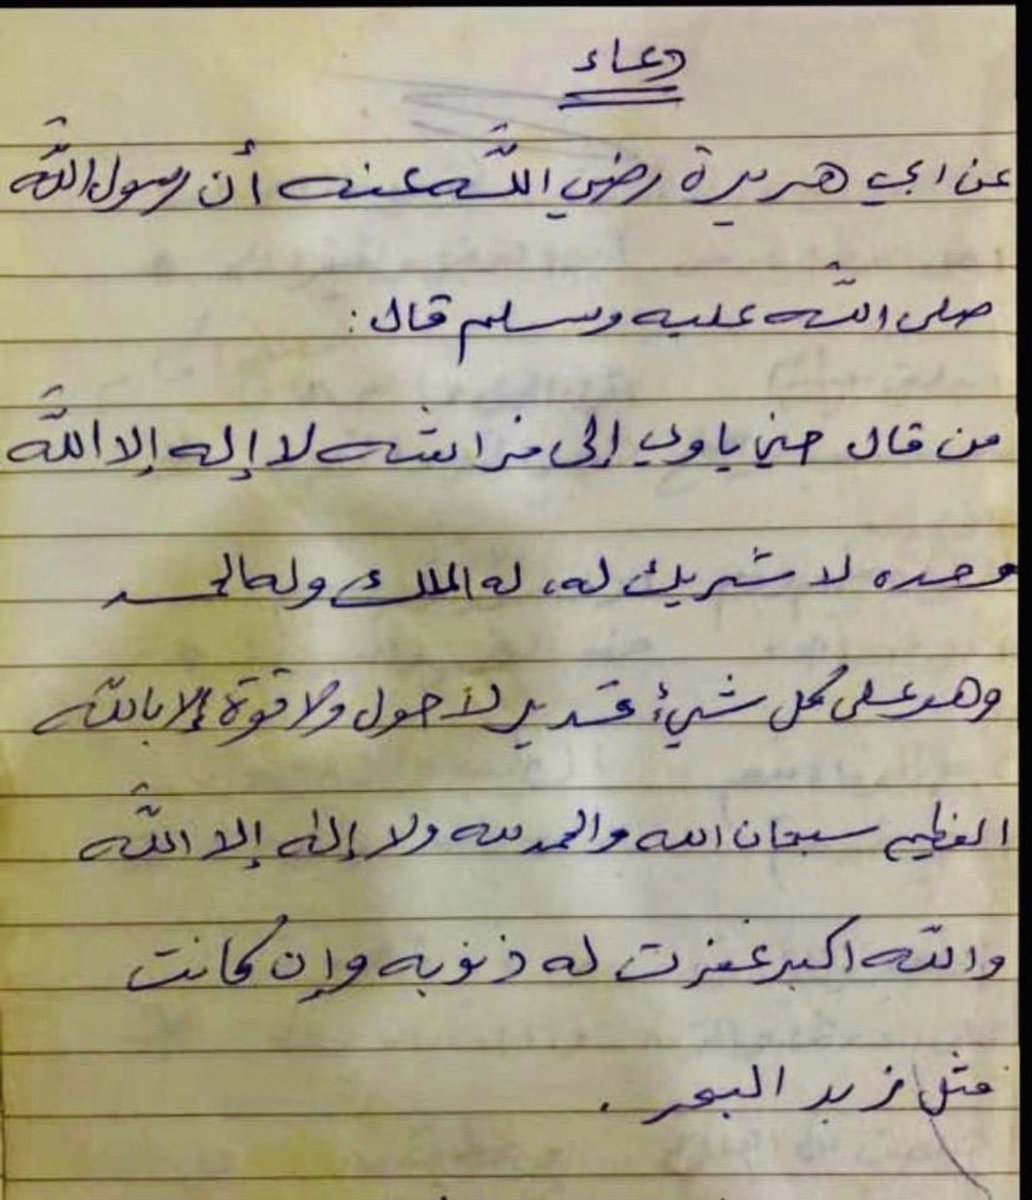 دعاء
عن ابي هريرة رضي الله عنه أن رسول الله
صلى الله عليه وسلم قال :
من قال حين ياوي إلى فراشه لا إله إلا الله
وحده لا شريك له، له الملك وله الحمد
وهو على كل شيئ قدير لا حول ولا قوة إلا بالله
العظيم سبحان الله والحمد لله ولا إله إلا الله
والله اكبر غفرت له ذنوبه وإن كانت
مثل زبد البحر .